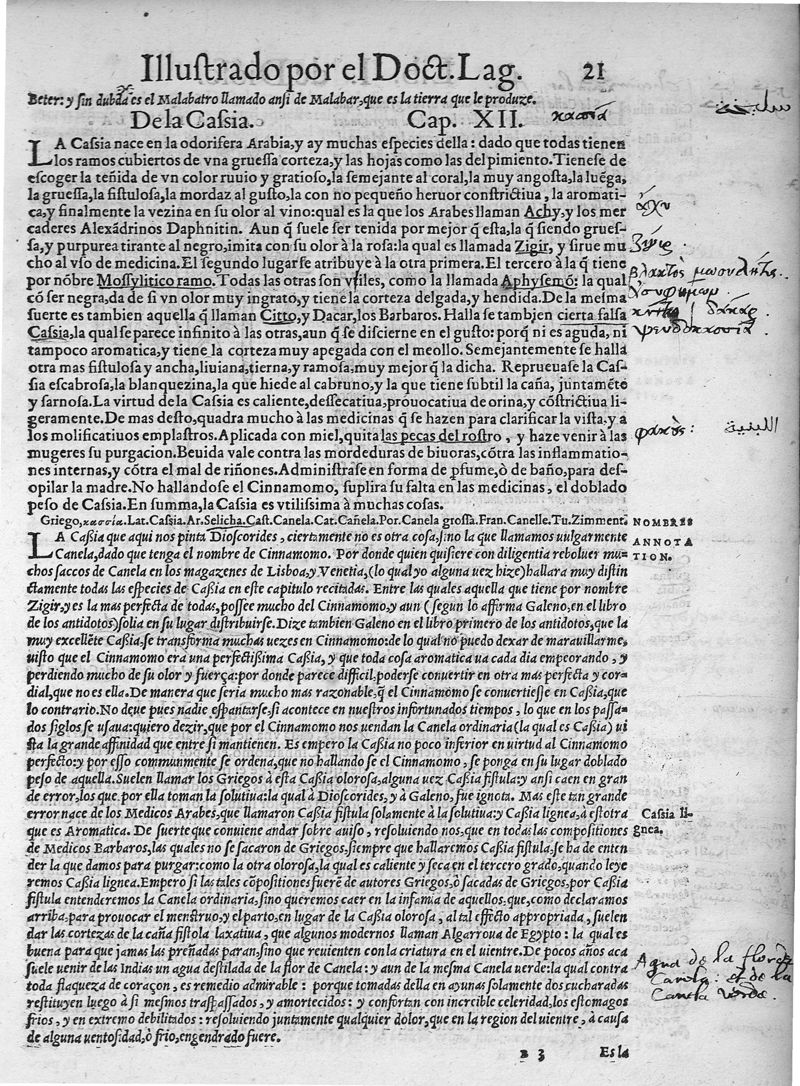 Illustrado por el Doct. Lag. 21
Beter: y sin dubda es el Malabatro llamado ansi de Malabar, que es la tierra que le produze.
De la Caſsia. Cap. XII. κασία
LA Caſsia nace en la odorifera Arabia, y ay muchas eſpecies della: dado que todas tienen
los ramos cubiertos de vna grueſſa corteza, y las hojas como las del pimiento. Tieneſe de
eſcoger la teñida de vn color ruuio y gratioſo, la ſemejante al coral, la muy anguſta, la luẽga,
la grueſſa, la fiſtuloſa, la mordaz al guſto, la con no pequeño heruor conſtrictiua, la aromati-
ca, y finalmente la vezina en ſu olor al vino: qual es la que los Arabes llaman Achy, y los mer
caderes Alexãdrinos Daphnitin. Aun q̃ ſuele ſer tenida por mejor q̃ eſta, la q̃ ſiendo grueſ-
ſa, y purpurea tirante al negro, imita con ſu olor à la roſa: la qual es llamada Zigir, y ſirue mu
cho al vſo de medicina. El ſegundo lugar ſe atribuye à la otra primera. El tercero à la q̃ tiene
por nõbre Moſſylitico ramo. Todas las otras ſon vtiles, como la llamada Aphyſemõ: la qual
cõ ſer negra, da de ſi vn olor muy ingrato, y tiene la corteza delgada, y hendida. De la meſma
ſuerte es tambien aquella q̃ llaman Citto, y Dacar, los Barbaros. Halla ſe tambien cierta falſa
Caſsia, la qual ſe parece infinito à las otras, aun q̃ ſe diſcierne en el guſto: porq̃ ni es aguda, ni
tampoco aromatica, y tiene la corteza muy apegada con el meollo. Semejantemente ſe halla
otra mas fiſtuloſa y ancha, liuiana, tierna, y ramoſa, muy mejor q̃ la dicha. Reprueuaſe la Caſ-
ſia eſcabroſa, la blanquezina, la que hiede al cabruno, y la que tiene ſubtil la caña, juntamẽte
y ſarnoſa. La virtud de la Caſsia es caliente, deſſecatiua, prouocatiua de orina, y cõſtrictiua li-
geramente. De mas deſto, quadra mucho à las medicinas q̃ ſe hazen para clarificar la viſta, y a
los molificatiuos emplaſtros. Aplicada con miel, quita las pecas del roſtro, y haze venir à las
mugeres ſu purgacion. Beuida vale contra las mordeduras de biuoras, cõtra las inflammatio-
nes internas, y cõtra el mal de riñones. Adminiſtraſe en forma de ꝑfume, ò de baño, para deſ-
opilar la madre. No hallandoſe el Cinnamomo, ſuplira ſu falta en las medicinas, el doblado
peſo de Caſsia. En ſumma, la Caſsia es vtiliſsima à muchas coſas.
Griego, κασσία. Lat. Caſsia. Ar. Selicha. Caſt. Canela. Cat. Cañela. Por. Canela groſſa. Fran. Canelle. Tu. Zimment. NOMBRES
LA Caſsia que aqui nos pinta Dioſcorides, ciertamente no es otra coſa, ſino la que llamamos uulgarmente ANNOTA
Canela, dado que tenga el nombre de Cinnamomo. Por donde quien quiſiere con diligentia reboluer mu- TION.
chos ſaccos de Canela en los magazenes de Lisboa, y Venetia, (lo qual yo alguna uez hize) hallara muy diſtin
ctamente todas las eſpecies de Caſsia en eſte capitulo recitadas. Entre las quales aquella que tiene por nombre
Zigir, y es la mas perfecta de todas, poſſee mucho del Cinnamomo, y aun (ſegun lo affirma Galeno, en el libro
de los antidotos) ſolia en ſu lugar diſtribuirſe. Dize tambien Galeno en el libro primero de los antidotos, que la
muy excellẽte Caſsia, ſe transforma muchas uezes en Cinnamomo: de lo qual no puedo dexar de marauillarme,
uiſto que el Cinnamomo era una perfectiſsima Caſsia, y que toda coſa aromatica ua cada dia empeorando, y
perdiendo mucho de ſu uirtud y fuerça: por donde parece difficil, poderſe conuertir en otra mas perfecta y cor-
dial, que no es ella. De manera que ſeria mucho mas razonable, q̃ el Cinnamomo ſe conuertieſſe en Caſsia, que
lo contrario. No deue pues nadie eſpantarſe, ſi acontece en nueſtros infortunados tiempos, lo que en los paſſa-
dos ſiglos ſe uſaua: quiero dezir, que por el Cinnamomo nos uendan la Canela ordinaria (la qual es Caſsia) ui
ſta la grande affinidad que entre ſi mantienen. Es empero la Caſsia no poco inferior en uirtud al Cinnamomo
perfecto: y por eſſo communmente ſe ordena, que no hallando ſe el Cinnamomo, ſe ponga en ſu lugar doblado
peſo de aquella. Suelen llamar los Griegos à eſta Caſsia oloroſa, alguna uez Caſsia fiſtula: y anſi caen en gran
de error, los que por ella toman la ſolutiua: la qual à Dioſcorides, y à Galeno, fue ignota. Mas eſte tan grande
error nace de los Medicos Arabes, que llamaron Caſsia fiſtula ſolamente à la ſolutiua: y Caſsia lignea, à eſtotra Caſsia li-
que es Aromatica. De ſuerte que conuiene andar ſobre auiſo, reſoluiendo nos, que en todas las compoſitiones gnea.
de Medicos Barbaros, las quales no ſe ſacaron de Griegos, ſiempre que hallaremos Caſsia fiſtula, ſe ha de enten
der la que damos para purgar: como la otra oloroſa, la qual es caliente y ſeca en el tercero grado, quando leye
remos Caſsia lignea. Empero ſi las tales cõpoſitiones fuerẽ de autores Griegos, ò ſacadas de Griegos, por Caſsia
fiſtula entenderemos la Canela ordinaria, ſino queremos caer en la infamia de aquellos, que, como declaramos
arriba, para prouocar el menſtruo, y el parto, en lugar de la Caſsia oloroſa, al tal effecto appropriada, ſuelen
dar las cortezas de la caña fiſtola laxatiua, que algunos modernos llaman Algarroua de Egypto: la qual es
buena para que jamas las preñadas paran, ſino que reuienten con la criatura en el uientre. De pocos años aca
ſuele uenir de las Indias un agua deſtilada de la flor de Canela: y aun de la meſma Canela uerde: la qual contra
toda flaqueza de coraçon, es remedio admirable: porque tomadas della en ayunas ſolamente dos cucharadas
reſtituyen luego à ſi meſmos traſpaſſados, y amortecidos: y confortan con incrible celeridad, los eſtomagos
frios, y en extremo debilitados: reſoluiendo juntamente qualquier dolor, que en la region del uientre, à cauſa
de alguna uentoſidad, ò frio, engendrado fuere.
B 3 Es la
سليخة
ἄχυ
ζιγιρ.
δάκαρ
ψευδοκασία
φακὸς:
Agua de la flor de
Canela: et de la
Canela verde.